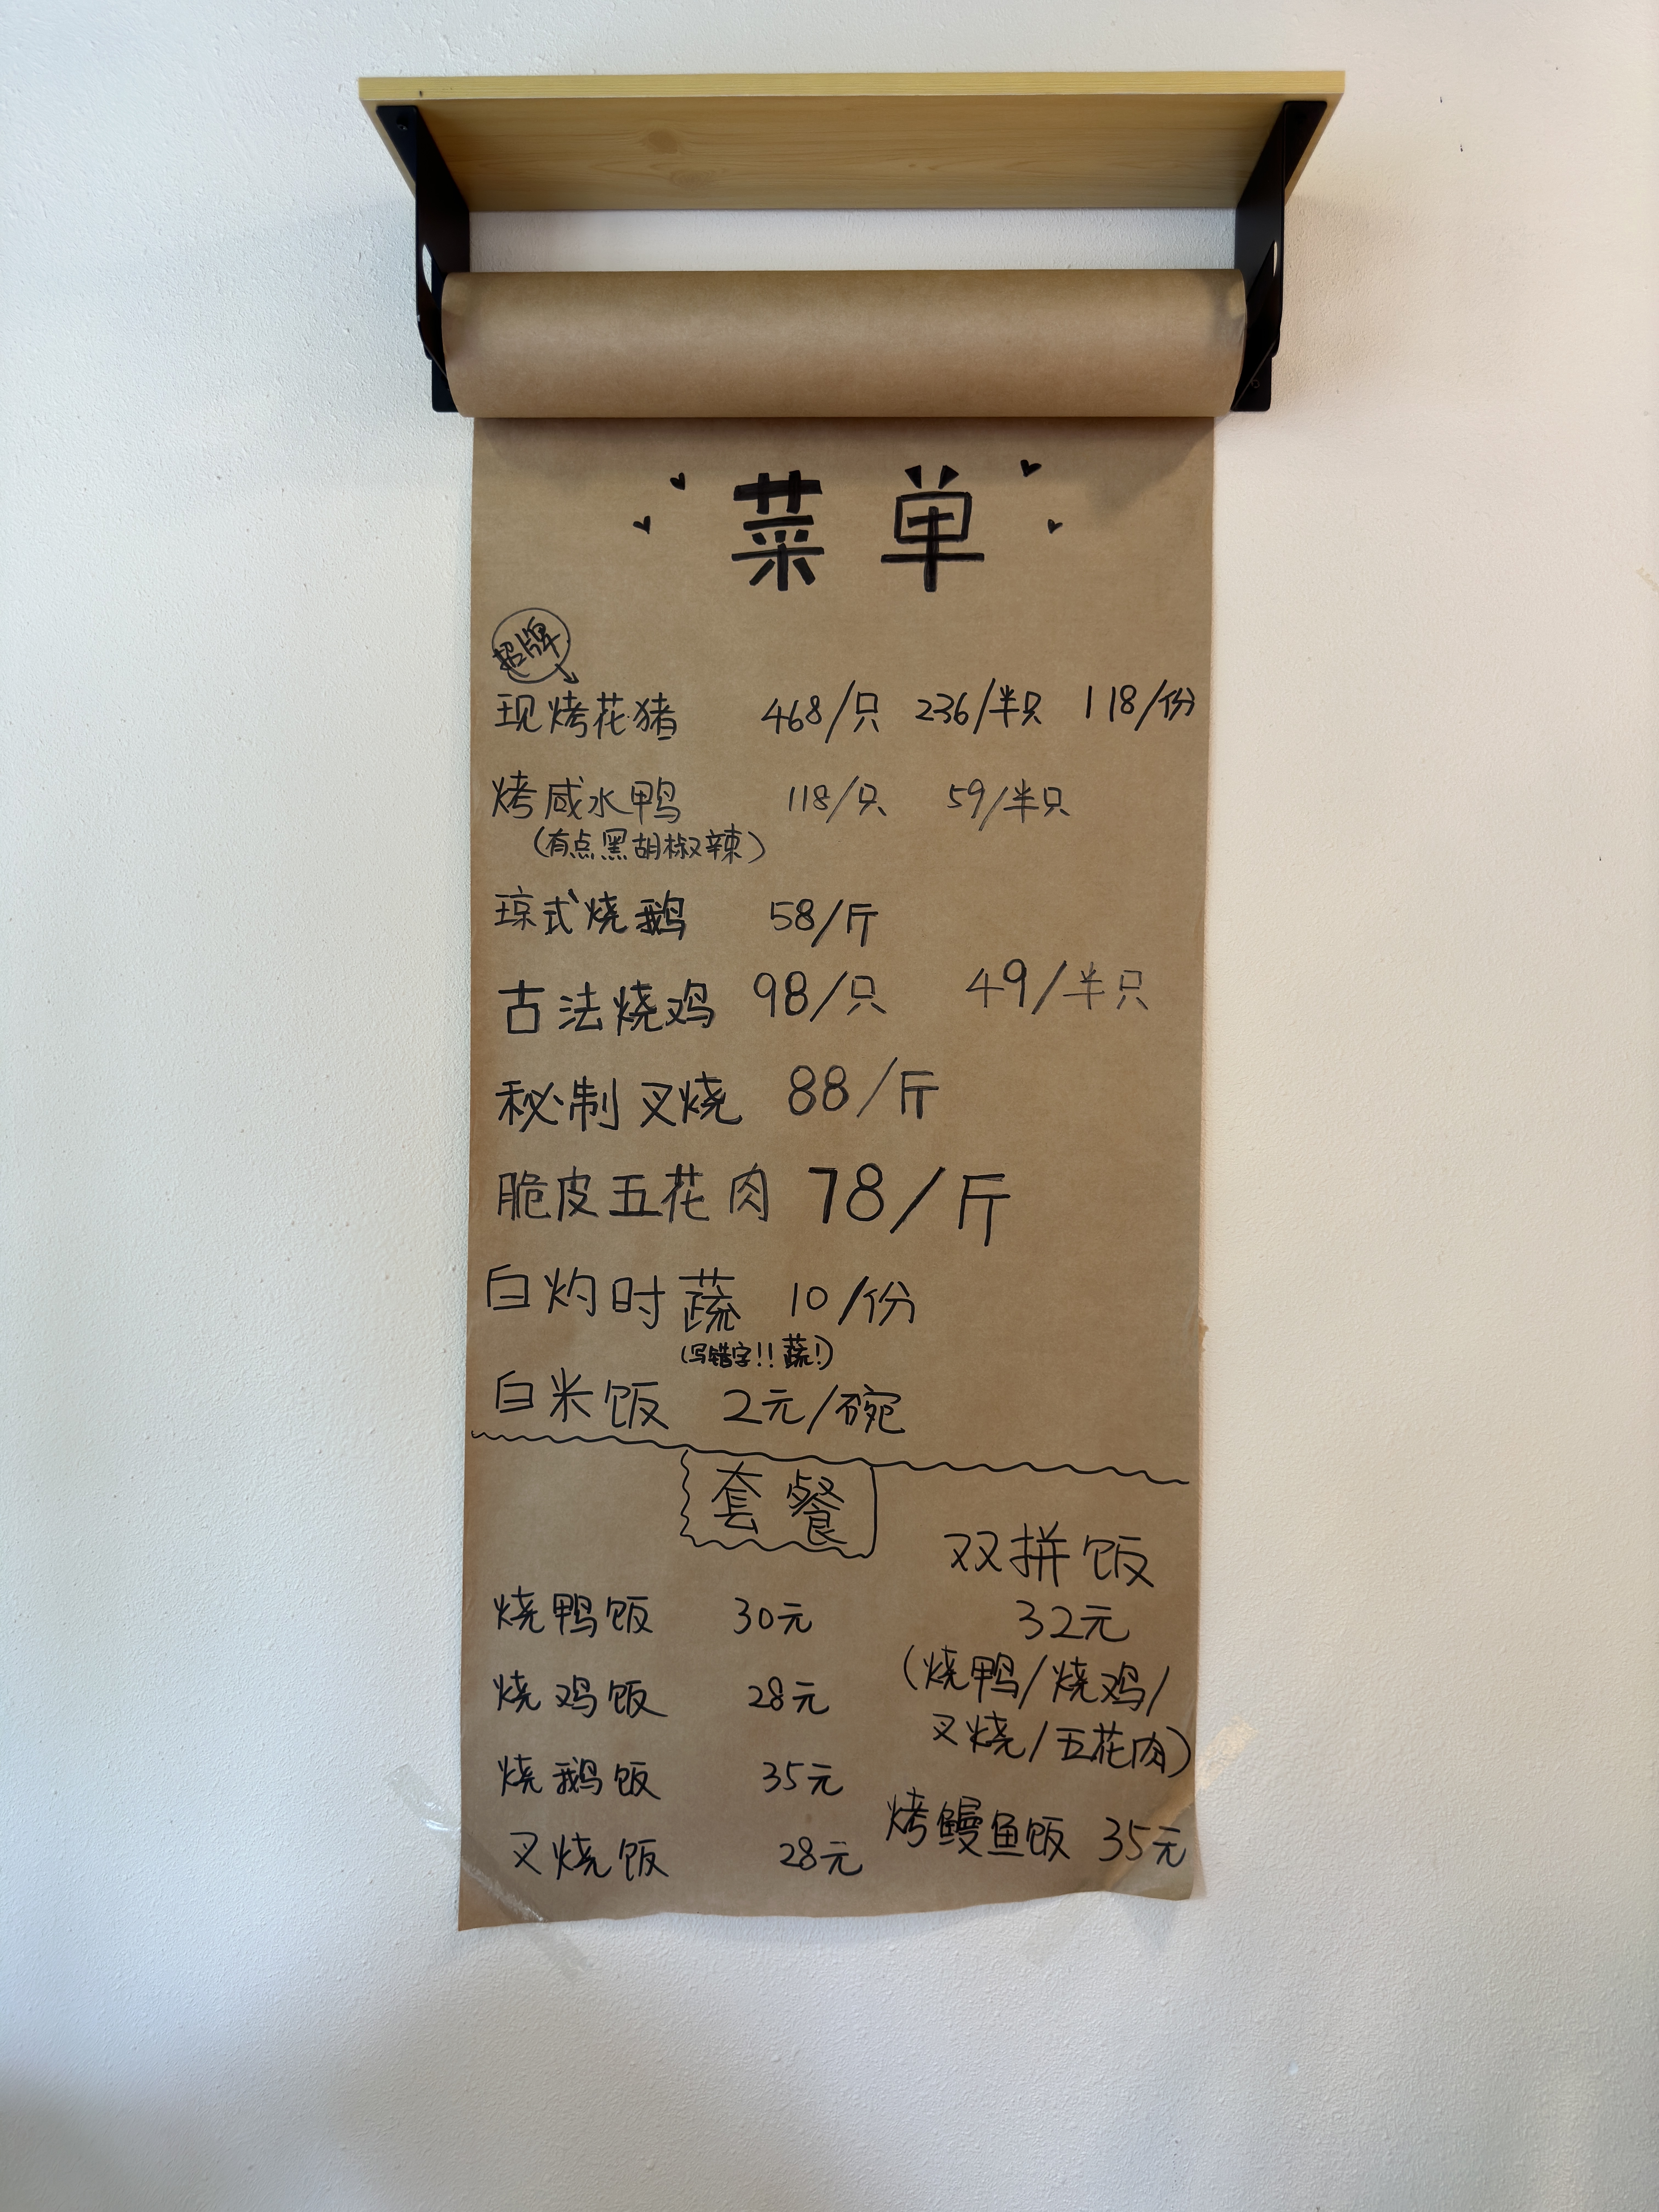 菜单
招牌
现烤花猪 468/只 236/半只 118/份
烤咸水鸭 118/只 59/半只
(有点黑胡椒辣)
琼式烧鹅 58/斤
古法烧鸡 98/只 49/半只
秘制叉烧 88/斤
脆皮五花肉 78/斤
白灼时蔬 10/份
(写错字!! 蔬!)
白米饭 2元/碗
套餐
烧鸭饭 30元
烧鸡饭 28元
烧鹅饭 35元
叉烧饭 28元
双拼饭
32元
(烧鸭/烧鸡/
叉烧/五花肉)
烤鳗鱼饭 35元